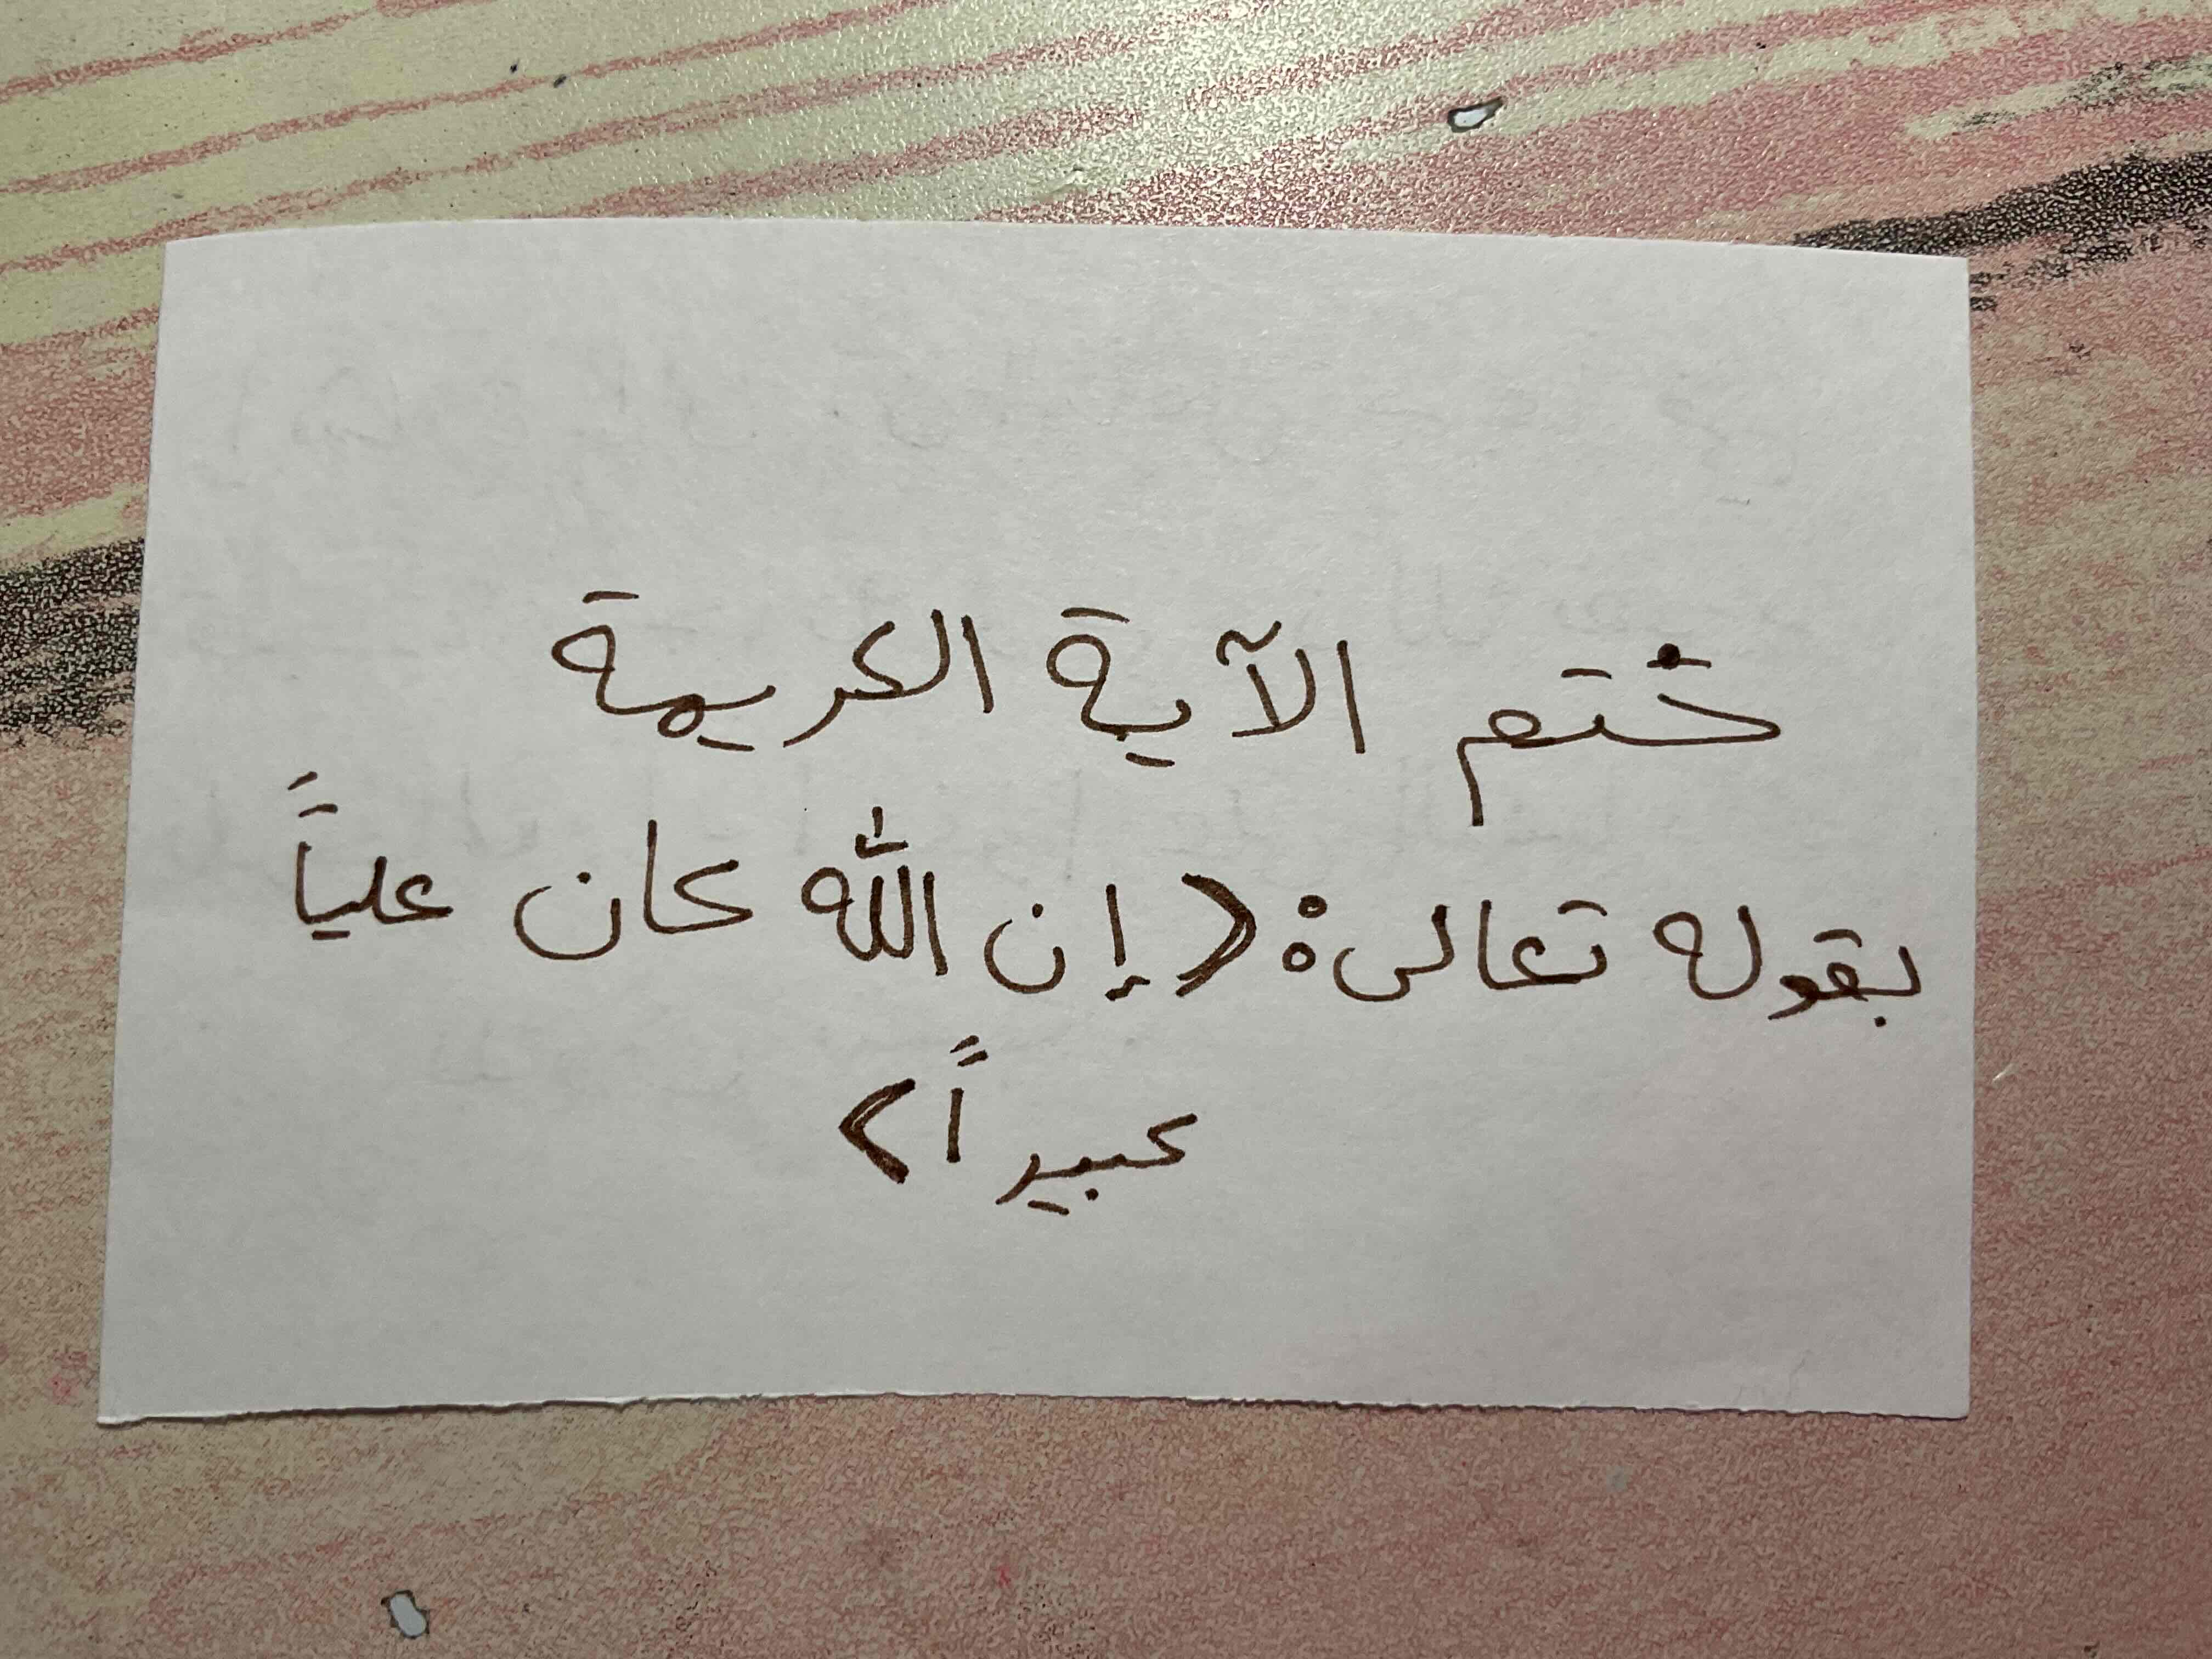 ختم الآية الكريمة
بقوله تعالى: ﴿إن الله كان علياً
كبيراً﴾